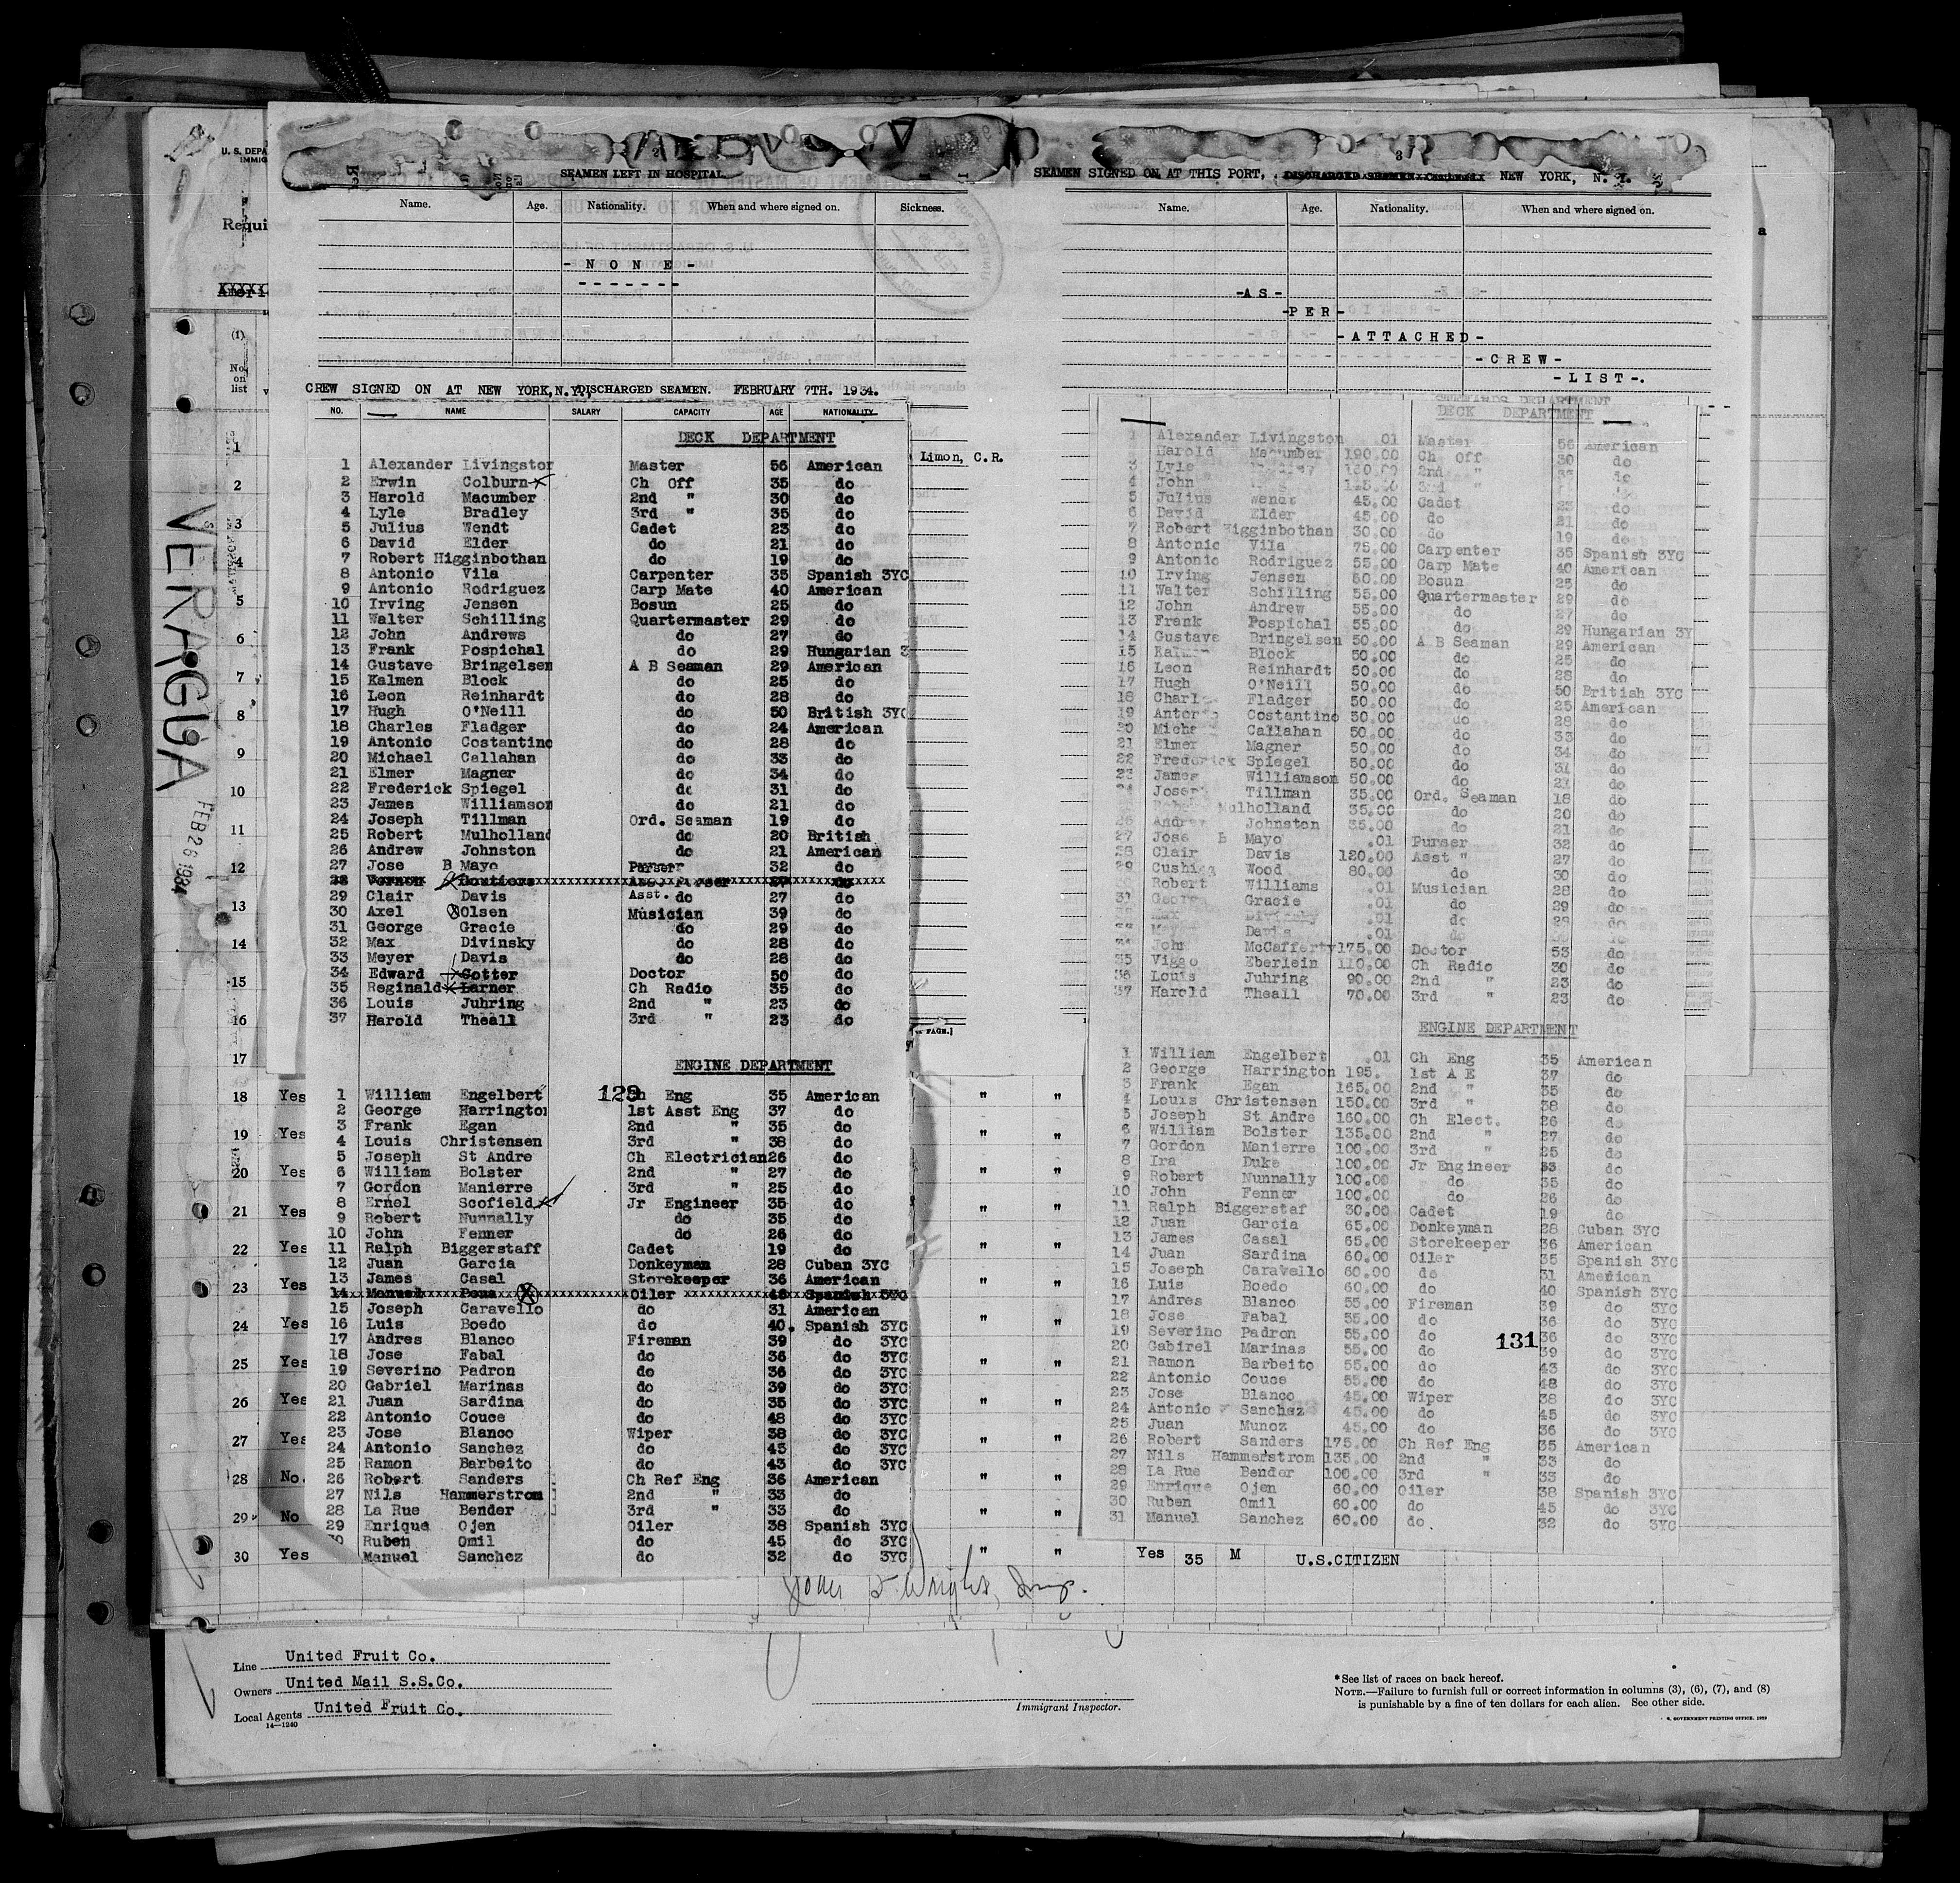 U. S. DEPA
IMMIG
Requi
Ameri
(1)
No.
on
list
VERAGUA
FEB 26 1934
SEAMEN LEFT IN HOSPITAL.
Name. Age. Nationality. When and where signed on. Sickness.
- N O N E -
- - - - - - -
SEAMEN SIGNED ON AT THIS PORT, NEW YORK, N. Y.
Name. Age. Nationality. When and where signed on.
-A S -
-P E R -
- A T T A C H E D -
- C R E W -
- L I S T -.
CREW SIGNED ON AT NEW YORK, N.Y., DISCHARGED SEAMEN. FEBRUARY 7TH. 1934.
NO. NAME SALARY CAPACITY AGE NATIONALITY
DECK DEPARTMENT
1 Alexander Livingston Master 56 American
2 Erwin Colburn Ch Off 35 do
3 Harold Macumber 2nd " 30 do
4 Lyle Bradley 3rd " 35 do
5 Julius Wendt Cadet 23 do
6 David Elder do 21 do
7 Robert Higginbothan do 19 do
8 Antonio Vila Carpenter 35 Spanish 3YC
9 Antonio Rodriguez Carp Mate 40 American
10 Irving Jensen Bosun 25 do
11 Walter Schilling Quartermaster 29 do
12 John Andrews do 27 do
13 Frank Pospichal do 29 Hungarian 3
14 Gustave Bringelsen A B Seaman 29 American
15 Kalmen Block do 25 do
16 Leon Reinhardt do 28 do
17 Hugh O'Neill do 50 British 3YC
18 Charles Fladger do 24 American
19 Antonio Costantino do 28 do
20 Michael Callahan do 33 do
21 Elmer Magner do 34 do
22 Frederick Spiegel do 31 do
23 James Williamson do 21 do
24 Joseph Tillman Ord. Seaman 19 do
25 Robert Mulholland do 20 British
26 Andrew Johnston do 21 American
27 Jose B Mayo Purser 32 do
28 Vernon Asst Purser 27 do
29 Clair Davis Asst. do 27 do
30 Axel Olsen Musician 39 do
31 George Gracie do 29 do
32 Max Divinsky do 28 do
33 Meyer Davis do 28 do
34 Edward Cotter Doctor 50 do
35 Reginald Larner Ch Radio 35 do
36 Louis Juhring 2nd " 23 do
37 Harold Theall 3rd " 23 do
ENGINE DEPARTMENT
129
1 William Engelbert Ch Eng 35 American
2 George Harrington 1st Asst Eng 37 do
3 Frank Egan 2nd " 35 do
4 Louis Christensen 3rd " 38 do
5 Joseph St Andre Ch Electrician 26 do
6 William Bolster 2nd " 27 do
7 Gordon Manierre 3rd " 25 do
8 Ernel Scofield Jr Engineer 35 do
9 Robert Nunnally do 35 do
10 John Fenner do 26 do
11 Ralph Biggerstaff Cadet 19 do
12 Juan Garcia Donkeyman 28 Cuban 3YC
13 James Casal Storekeeper 36 American
14 Manuel Pena Oiler 48 Spanish 3YC
15 Joseph Caravello do 31 American
16 Luis Boedo do 40. Spanish 3YC
17 Andres Blanco Fireman 39 do 3YC
18 Jose Fabal do 36 do 3YC
19 Severino Padron do 36 do 3YC
20 Gabriel Marinas do 39 do 3YC
21 Juan Sardina do 35 do 3YC
22 Antonio Couce do 48 do 3YC
23 Jose Blanco Wiper 38 do 3YC
24 Antonio Sanchez do 45 do 3YC
25 Ramon Barbeito do 43 do 3YC
26 Robert Sanders Ch Ref Eng 36 American
27 Nils Hammerstrom 2nd " 33 do
28 La Rue Bender 3rd " 33 do
29 Enrique Ojen Oiler 38 Spanish 3YC
30 Ruben Omil do 45 do 3YC
Manuel Sanchez do 32 do 3YC
Limon, C.R.
PAGE.]
DECK DEPARTMENT
1 Alexander Livingston .01 Master 56 American
Harold Macumber 190.00 Ch Off 30 do
3 Lyle 160.00 2nd " 35 do
4 John 125.00 3rd " do
5 Julius Wendt 45.00 Cadet 23 do
6 David Elder 45.00 do 21 do
7 Robert Higginbothan 30.00 do 19 do
8 Antonio Vila 75.00 Carpenter 35 Spanish 3YC
9 Antonio Rodriguez 55.00 Carp Mate 40 American
10 Irving Jensen 60.00 Bosun 25 do
11 Walter Schilling 55.00 Quartermaster 29 do
12 John Andrew 55.00 do 27 do
13 Frank Pospichal 55.00 do 29 Hungarian 3Y
14 Gustave Bringelsen 50.00 A B Seaman 29 American
15 Kalmen Block 50.00 do 25 do
16 Leon Reinhardt 50.00 do 28 do
17 Hugh O'Neill 50.00 do 50 British 3YC
18 Charles Fladger 50.00 do 25 American
19 Antonio Costantino 50.00 do 28 do
20 Michael Callahan 50.00 do 33 do
21 Elmer Magner 50.00 do 34 do
22 Frederick Spiegel 50.00 do 31 do
23 James Williamson 50.00 do 21 do
24 Joseph Tillman 35.00 Ord. Seaman 18 do
Robert Mulholland 35.00 do 20 do
26 Andrew Johnston 35.00 do 21 do
27 Jose B Mayo .01 Purser 32 do
28 Clair Davis 120.00 Asst " 27 do
29 Cushing Wood 80.00 do 30 do
Robert Williams .01 Musician 28 do
31 George Gracie .01 do 29 do
Max Divinsky .01 do 28 do
Meyer Davis .01 do do
34 John McCafferty 175.00 Doctor 53 do
35 Viggo Eberlein 110.00 Ch Radio 30 do
36 Louis Juhring 90.00 2nd " 23 do
37 Harold Theall 70.00 3rd " 23 do
ENGINE DEPARTMENT
1 William Engelbert .01 Ch Eng 35 American
2 George Harrington 195. 1st A E 37 do
3 Frank Egan 165.00 2nd " 35 do
4 Louis Christensen 150.00 3rd " 38 do
5 Joseph St Andre 160.00 Ch Elect. 26 do
6 William Bolster 135.00 2nd " 27 do
7 Gordon Manierre 100.00 3rd " 25 do
8 Ira Duke 100.00 Jr Engineer 33 do
9 Robert Nunnally 100.00 do 35 do
10 John Fenner 100.00 do 26 do
11 Ralph Biggerstaf 30.00 Cadet 19 do
12 Juan Garcia 65.00 Donkeyman 28 Cuban 3YC
13 James Casal 65.00 Storekeeper 36 American
14 Juan Sardina 60.00 Oiler 35 Spanish 3YC
15 Joseph Caravello 60.00 do 31 American
16 Luis Boedo 60.00 do 40 Spanish 3YC
17 Andres Blanco 55.00 Fireman 39 do 3YC
18 Jose Fabal 55.00 do 36 do 3YC
19 Severino Padron 55.00 do 36 do 3YC
131
20 Gabirel Marinas 55.00 do 39 do 3YC
21 Ramon Barbeito 55.00 do 43 do 3YC
22 Antonio Couce 55.00 do 48 do 3YC
23 Jose Blanco 45.00 Wiper 38 do 3YC
24 Antonio Sanchez 45.00 do 45 do 3YC
25 Juan Munoz 45.00 do 36 do 3YC
26 Robert Sanders 175.00 Ch Ref Eng 35 American
27 Nils Hammerstrom 135.00 2nd " 33 do
28 La Rue Bender 100.00 3rd " 33 do
29 Enrique Ojen 60.00 Oiler 38 Spanish 3YC
30 Ruben Omil 60.00 do 45 do 3YC
31 Manuel Sanchez 60.00 do 32 do 3YC
1
2
3
4
5
6
7
8
9
10
11
12
13
14
15
16
17
18 Yes " "
19 Yes " "
20 Yes " "
21 Yes " "
22 Yes " "
23 Yes " "
24 Yes " "
25 Yes " "
26 Yes " "
27 Yes " "
28 No. " "
29 No " "
30 Yes " " Yes 35 M U.S.CITIZEN
Line United Fruit Co.
Owners United Mail S.S.Co.
Local Agents United Fruit Co.
14—1240
Immigrant Inspector.
* See list of races on back hereof.
NOTE.—Failure to furnish full or correct information in columns (3), (6), (7), and (8)
is punishable by a fine of ten dollars for each alien. See other side.
GOVERNMENT PRINTING OFFICE.